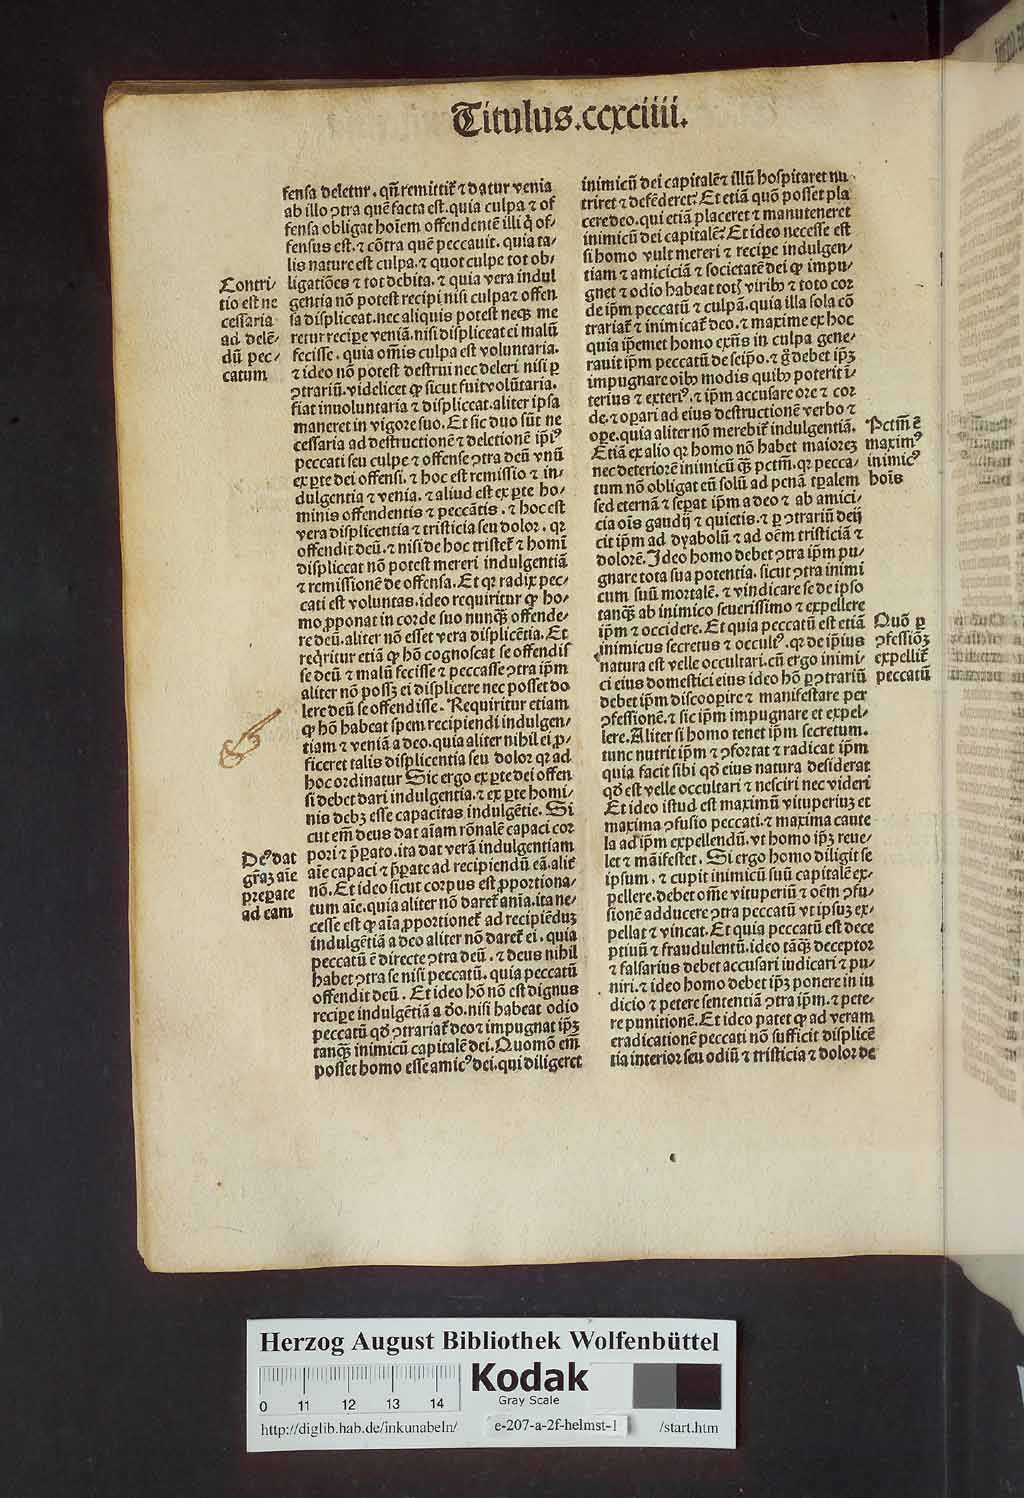 Titulus.ccxciiii.
fensa deletur. qñ remittit̃ ⁊ datur venia
ab illo ꝯtra quẽ facta est. quia culpa ⁊ of
fensa obligat hoĩem offendentẽ illi q̇ of/
fensus est. ⁊ cõtra quẽ peccauit. quia ta/
lis nature est culpa. ⁊ quot culpe tot ob/
ligatiões ⁊ tot debita. ⁊ quia vera indul
gentia nõ potest recipi nisi culpa ⁊ offen
sa displiceat. nec aliquis potest neqꝫ me
retur recipe veniã. nisi displiceat ei malũ
fecisse. quia om̃is culpa est voluntaria.
⁊ ideo nõ potest destrui nec deleri nisi ꝑ
ꝯtrariũ. videlicet ꝙ sicut fuit volũtaria.
fiat inuoluntaria ⁊ displiceat. aliter ipsa
maneret in vigore suo. Et sic duo sũt ne
cessaria ad destructionẽ ⁊ deletionẽ ip̃iꝰ
peccati seu culpe ⁊ offense ꝯtra deũ vnũ
ex ꝑte dei offensi. ⁊ hoc est remissio ⁊ in/
dulgentia ⁊ venia. ⁊ aliud est ex ꝑte ho/
minis offendentis ⁊ peccãtis. ⁊ hoc est
vera displicentia ⁊ tristicia seu dolor. qꝛ
offendit deũ. ⁊ nisi de hoc tristet̃ ⁊ homĩ
displiceat nõ potest mereri indulgentiã
⁊ remissionẽ de offensa. Et qꝛ radix pec/
cati est voluntas. ideo requiritur ꝙ ho/
mo ꝓponat in corde suo nunqꝫ offende/
re deũ. aliter nõ esset vera displicẽtia. Et
req̇ritur etiã ꝙ hõ cognoscat se offendis
se deũ ⁊ malũ fecisse ⁊ peccasse ꝯtra ip̃m
aliter nõ possꝫ ei displicere nec posset do
lere deũ se offendisse. Requiritur etiam
ꝙ hõ habeat spem recipiendi indulgen/
tiam ⁊ veniã a deo. quia aliter nihil ei ꝓ/
ficeret talis displicentia seu dolor qꝛ ad
hoc ordinatur Sic ergo ex ꝑte dei offen
si debet dari indulgentia. ⁊ ex ꝑte homi/
nis debꝫ esse capacitas indulgẽtie. Si
cut em̃ deus dat aĩam rõnalẽ capaci cor
pori ⁊ p̃ꝑato. ita dat verã indulgentiam
aĩe capaci ⁊ p̃ꝑate ad recipiendũ eã. alit̃
nõ. Et ideo sicut corpus est ꝓportiona/
tum aĩe. quia aliter nõ daret̃ aĩa. ita ne/
cesse est ꝙ aĩa ꝓportionet̃ ad recipiẽduꝫ
indulgẽtiã a deo aliter nõ daret̃ ei. quia
peccatũ ẽ directe ꝯtra deũ. ⁊ deus nihil
habet ꝯtra se nisi peccatũ. quia peccatũ
offendit deũ. Et ideo hõ nõ est dignus
recipe indulgẽtiã a deo. nisi habeat odio
peccatũ qđ ꝯtrariat̃ deo ⁊ impugnat ip̃ꝫ
tanqꝫ inimicũ capitalẽ dei. Quomõ em̃
posset homo esse amicꝰ dei. qui diligeret
Contri/
tio est ne
cessaria
ad delẽ/
dũ pec/
catum
Deꝰ dat
gr̃aꝫ aĩe
preꝑate
ad eam
inimicũ dei capitalẽ ⁊ illũ hospitaret nu
triret ⁊ defẽderet? Et etiã quõ posset pla
cere deo. qui etiã placeret ⁊ manuteneret
inimicũ dei capitalẽ? Et ideo necesse est
si homo vult mereri ⁊ recipe indulgen/
tiam ⁊ amiciciã ⁊ societatẽ dei ꝙ impu/
gnet ⁊ odio habeat totꝭ viribꝰ ⁊ toto cor
de ip̃m peccatũ ⁊ culpã. quia illa sola cõ
trariat̃ ⁊ inimicat̃ deo. ⁊ maxime ex hoc
quia ip̃emet homo exñs in culpa gene/
rauit ip̃m peccatũ de seip̃o. ⁊ g̊ debet ip̃ꝫ
impugnare oĩbꝰ modis quibꝰ poterit ĩ/
terius ⁊ exteriꝰ. ⁊ ip̃m accusare ore ⁊ cor
de. ⁊ oꝑari ad eius destructionẽ verbo ⁊
oꝑe. quia aliter nõ merebit̃ indulgentiã.
Etiã ex alio qꝛ homo nõ habet maiorẽ
nec deteriorẽ inimicũ qꝫ pctm̃. qꝛ pecca/
tum nõ obligat eũ solũ ad penã tꝑalem
sed eternã ⁊ seꝑat ip̃m a deo ⁊ ab amici/
cia oĩs gaudij ⁊ quietis. ⁊ ꝑ ꝯtrariũ deij
cit ip̃m ad dyabolũ ⁊ ad oẽm tristiciã ⁊
dolorẽ. Ideo homo debet ꝯtra ip̃m pu/
gnare tota sua potentia. sicut ꝯtra inimi
cum suũ mortalẽ. ⁊ vindicare se de ipso
tanqꝫ ab inimico seuerissimo ⁊ expellere
ip̃m ⁊ occidere. Et quia peccatũ est etiã
inimicus secretus ⁊ occultꝰ. qꝛ de ip̃ius
natura est velle occultari. cũ ergo inimi/
ci eius domestici eius ideo hõ ꝑ ꝯtrariũ
debet ip̃m discooꝑire ⁊ manifestare per
ꝯfessionẽ. ⁊ sic ip̃m impugnare et expel/
lere. Aliter si homo tenet ip̃m secretum.
tunc nutrit ip̃m ⁊ ꝯfortat ⁊ radicat ip̃m
quia facit sibi qđ eius natura desiderat
qđ est velle occultari ⁊ nesciri nec videri
Et ideo istud est maximũ vituperiuꝫ et
maxima ꝯfusio peccati. ⁊ maxima caute
la ad ip̃m expellendũ. vt homo ip̃ꝫ reue/
let ⁊ mãifestet. Si ergo homo diligit se
ipsum. ⁊ cupit inimicũ suũ capitalẽ ex/
pellere. debet om̃e vituperiũ ⁊ oẽm ꝯfu/
sionẽ adducere ꝯtra peccatũ vt ipsuꝫ ex/
pellat ⁊ vincat. Et quia peccatũ est dece
ptiuũ ⁊ fraudulentũ. ideo tãqꝫ deceptor
⁊ falsarius debet accusari iudicari ⁊ pu/
niri. ⁊ ideo homo debet ip̃ꝫ ponere in iu
dicio ⁊ petere sententiã ꝯtra ip̃m. ⁊ pete/
re punitionẽ. Et ideo patet ꝙ ad veram
eradicationẽ peccati nõ sufficit displicẽ
tia interior seu odiũ ⁊ tristicia ⁊ dolor de
Pctm̃ ẽ
maximꝰ
inimicꝰ
hoĩs
Quõ ꝑ
ꝯfessiõꝫ
expellit̃
peccatũ
Herzog August Bibliothek Wolfenbüttel
0 11 12 13 14
Kodak
Gray Scale
http://diglib.hab.de/inkunabeln/ e-207-a-2f-helmst-1 /start.htm